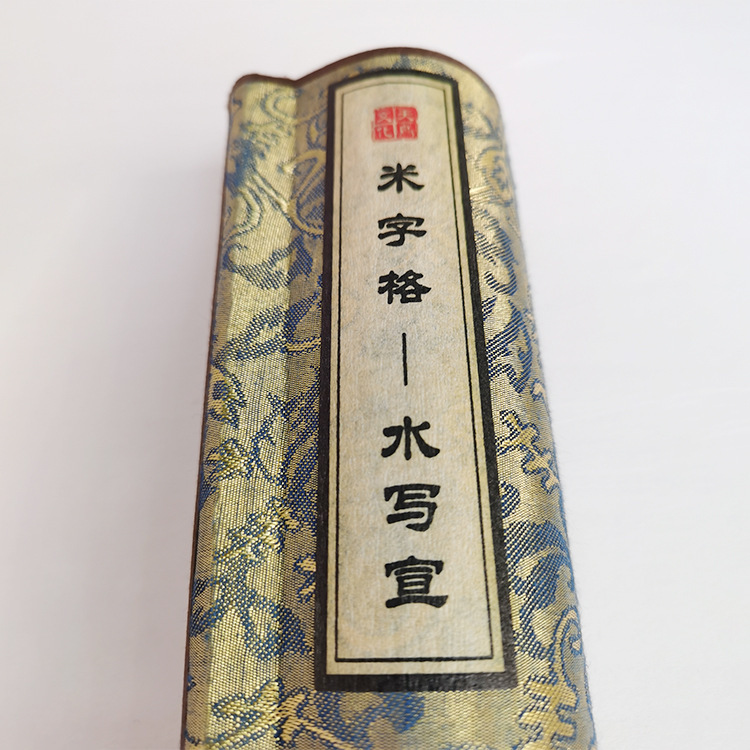 米字格—水写宣